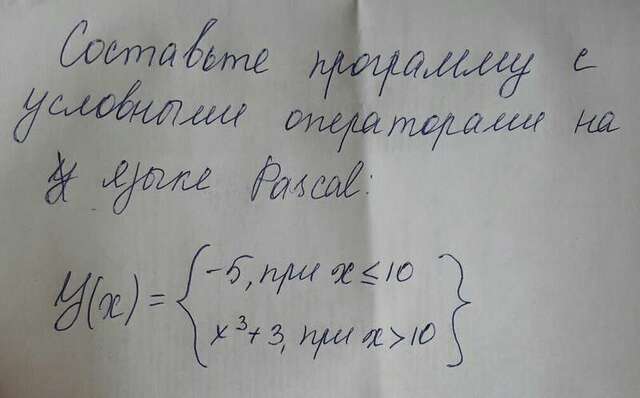 Составьте программу с
условными операторами на
языке Pascal:
Y(x) = { -5, при x ≤ 10
x³+3, при x > 10 }